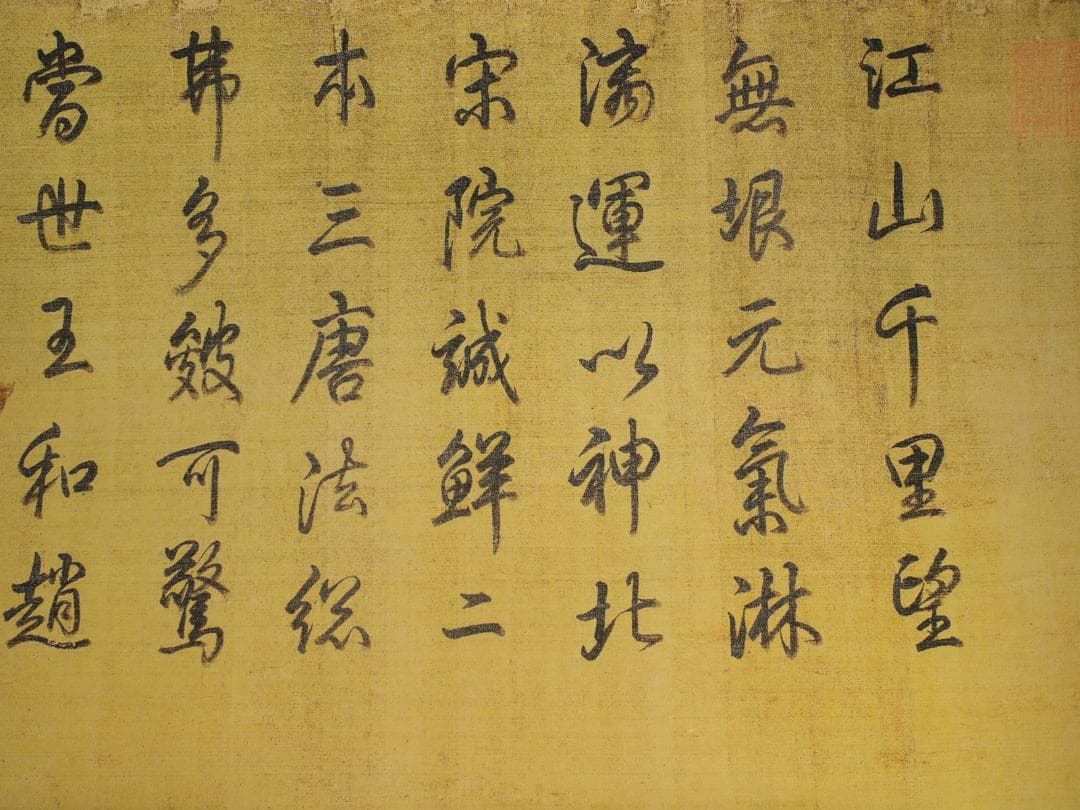 江山千里望
無垠元氣淋
漓運以神北
宋院誠鮮二
本三唐法總
弗多皴可驚
嘗世王和趙